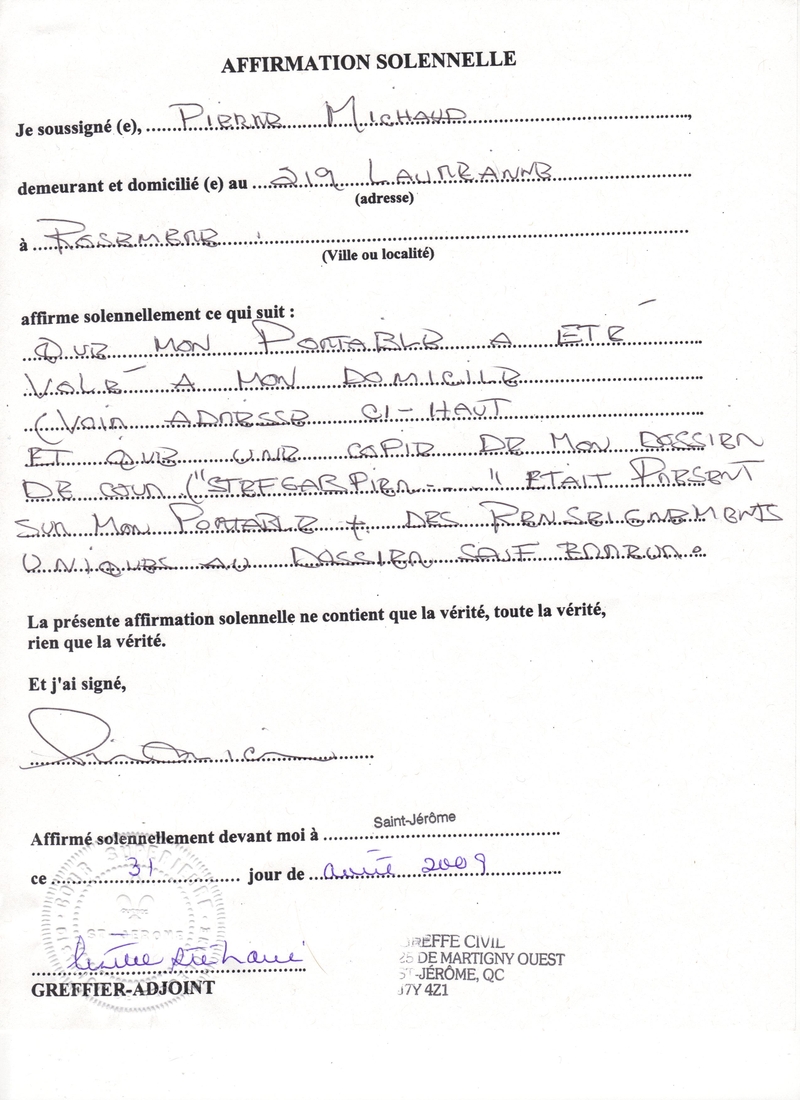 AFFIRMATION SOLENNELLE
Je soussigné (e), PIERRE MICHAUD ,
demeurant et domicilié (e) au 219 LAUREANNE
(adresse)
à ROSEMERE
(Ville ou localité)
affirme solennellement ce qui suit :
QUE MON PORTABLE A ETÉ
VOLÉ A MON DOMICILE
(VOIR ADRESSE CI-HAUT
ET QUE UNE COPIE DE MON DOSSIER
DE COUR ( ETAIT PRESENT
SUR MON PORTABLE + DES RENSEIGNEMENTS
UNIQUES AU DOSSIER SAUF ERREUR.
La présente affirmation solennelle ne contient que la vérité, toute la vérité,
rien que la vérité.
Et j'ai signé,
Affirmé solennellement devant moi à Saint-Jérôme
ce 31 jour de 2009
ST-JEROME
GREFFIER-ADJOINT
GREFFE CIVIL
25 DE MARTIGNY OUEST
ST-JÉRÔME, QC
J7Y 4Z1